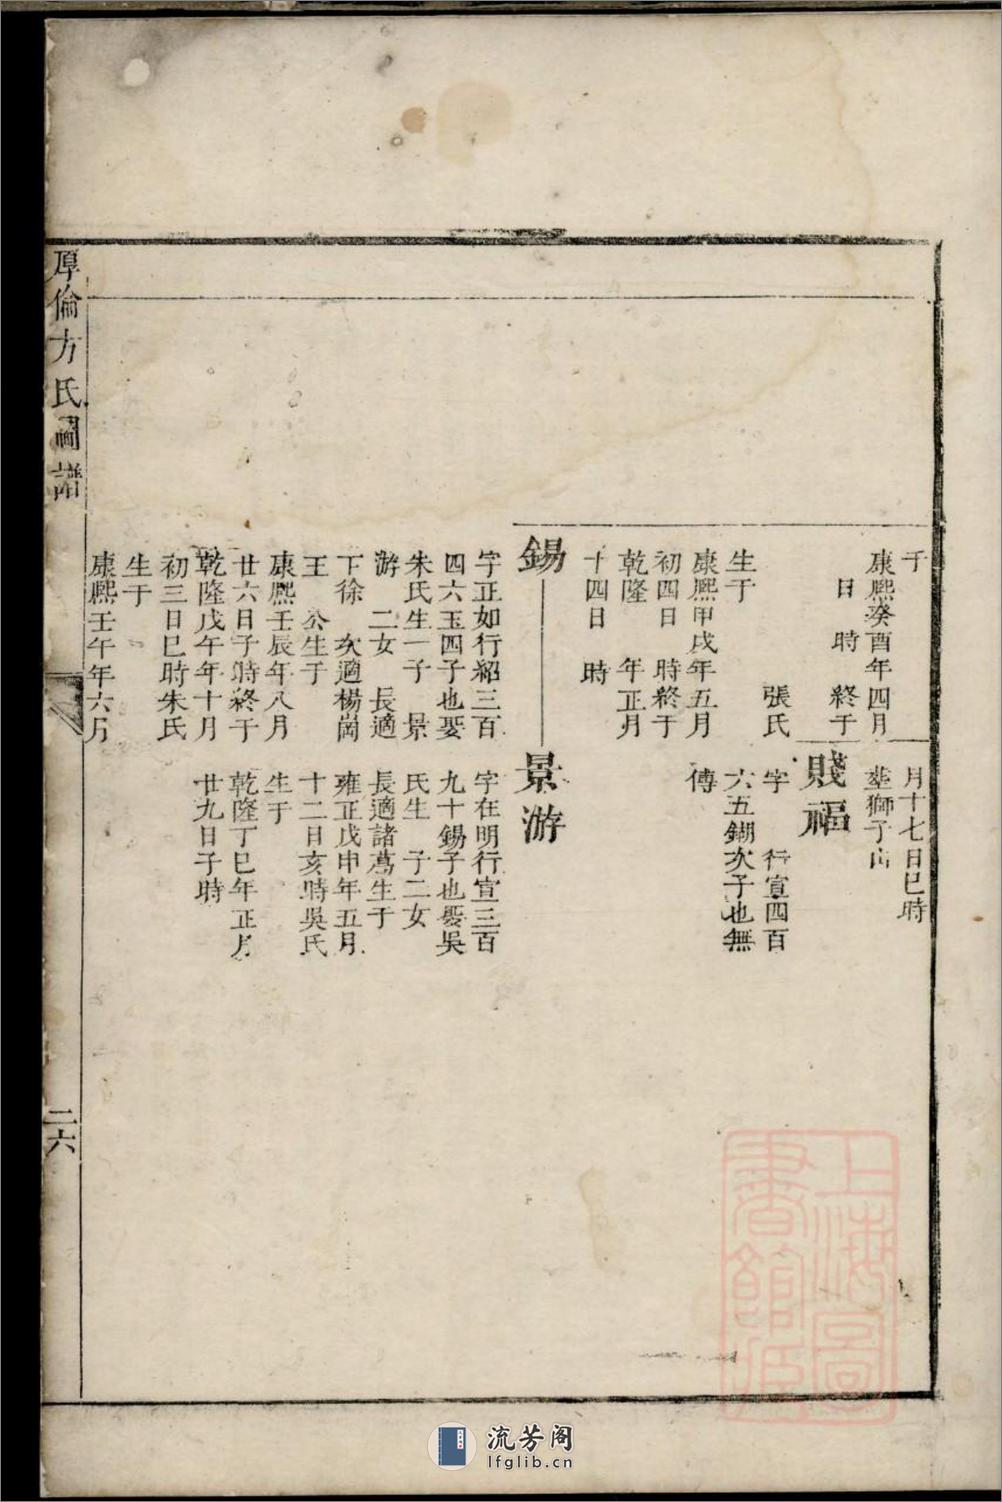 于
康熙癸酉年四月
日 時 終于
張氏
生于
康熙甲戌年五月
初四日 時終于
乾隆 年正月
十四日 時
月十七日巳時
塟獅子山
賤福
字 行宣四百
六五鍸次子也無
傳
錫
字正如行紹三百
四六玉四子也娶
朱氏生一子 景
游 二女 長適
下徐 次適楊崗
王 公生于
康熙壬辰年八月
廿六日子時終于
乾隆戊午年十月
初三日巳時朱氏
生于
康熙壬午年六月
景游
字在明行宣三百
九十錫子也娶吳
氏生 子二女
長適諸葛生于
雍正戊申年五月
十二日亥時吳氏
生于
乾隆丁巳年正月
廿九日子時
厚倫方氏圖譜
二六
上海圖書館藏
流芳阁
lfglib.cn